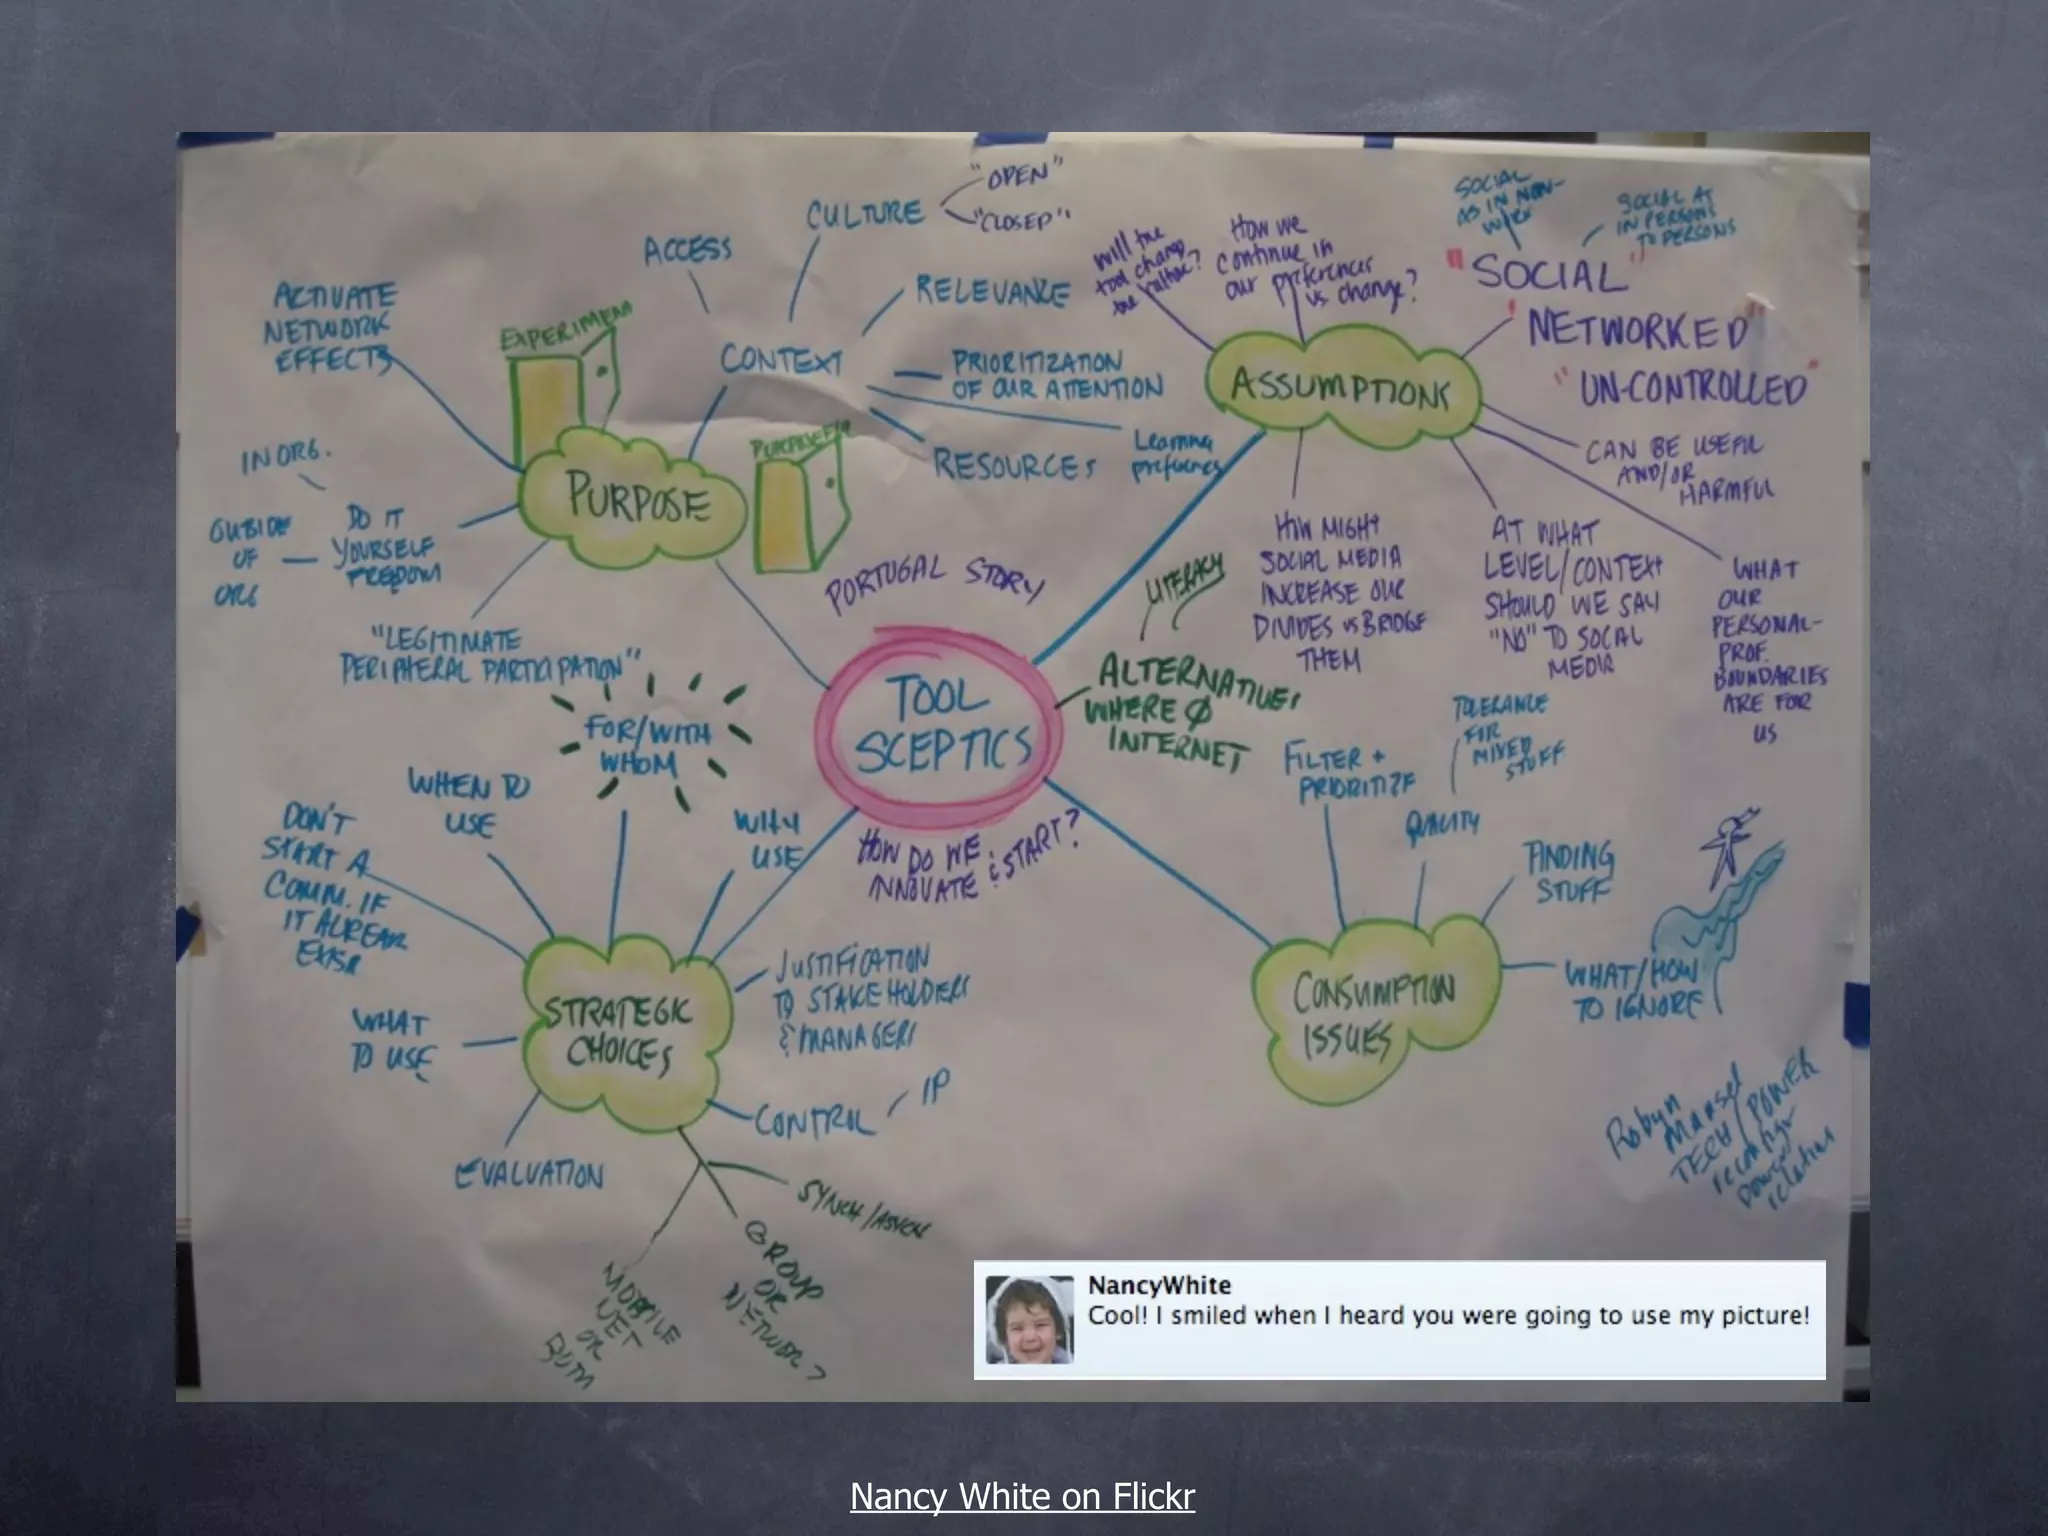 "OPEN"
CULTURE
"CLOSED"
ACCESS
RELEVANCE
CONTEXT
PRIORITIZATION
OF OUR ATTENTION
Learning
preferences
RESOURCES
ACTIVATE
NETWORK
EFFECTS
EXPERIMENT
PURPOSE
IN ORG.
OUTSIDE
OF
ORG
DO IT
YOURSELF
FREEDOM
"LEGITIMATE
PERIPHERAL PARTICIPATION"
Will the
tool change
the culture?
How we
continue in
our preferences
vs. change?
SOCIAL
AS IN NON-
WORK
SOCIAL AS
IN PERSONS
TO PERSONS
"SOCIAL"
"NETWORKED"
"UN-CONTROLLED"
ASSUMPTIONS
CAN BE USEFUL
AND/OR
HARMFUL
HOW MIGHT
SOCIAL MEDIA
INCREASE OUR
DIVIDES vs BRIDGE
THEM
AT WHAT
LEVEL/CONTEXT
SHOULD WE SAY
"NO" TO SOCIAL
MEDIA
WHAT
OUR
PERSONAL-
PROF.
BOUNDARIES
ARE FOR
US
PORTUGAL STORY
TOOL
SCEPTICS
HOW DO WE
INNOVATE & START?
LITERACY
ALTERNATIVES
WHERE Ø
INTERNET
FOR/WITH
WHOM
WHEN TO
USE
WHY
USE
DON'T
START A
COMM. IF
IT ALREADY
EXISTS
WHAT
TO USE
STRATEGIC
CHOICES
JUSTIFICATION
TO STAKEHOLDERS
& MANAGERS
CONTROL
IP
EVALUATION
SYNCH/ASYNCH
GROUP
OR
NETWORK?
MOBILE
NET
OR
BOTH
FILTER +
PRIORITIZE
TOLERANCE
FOR
MIXED
STUFF
QUALITY
FINDING
STUFF
CONSUMPTION
ISSUES
WHAT/HOW
TO IGNORE
Robyn
Mansel
TECH/POWER
reconfigr
power
relations
NancyWhite
Cool! I smiled when I heard you were going to use my picture!
Nancy White on Flickr